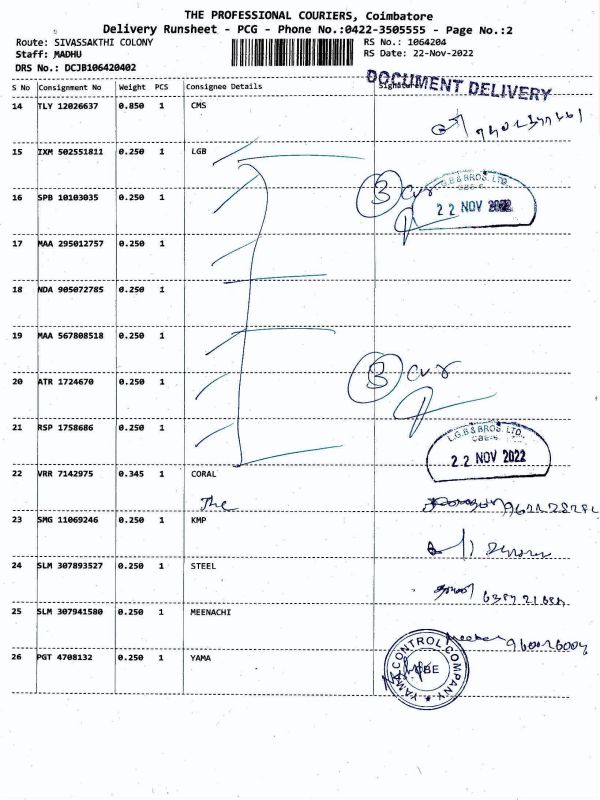 THE PROFESSIONAL COURIERS, Coimbatore
Delivery Runsheet - PCG - Phone No.:0422-3505555 - Page No.:2
Route: SIVASSAKTHI COLONY RS No.: 1064204
Staff: MADHU RS Date: 22-Nov-2022
DRS No.: DCJB106420402
DOCUMENT DELIVERY
S No Consignment No Weight PCS Consignee Details Signature
14 TLY 12026637 0.850 1 CMS
15 IXM 502551811 0.250 1 LGB
L.G.B & BROS. LTD.
16 SPB 10103035 0.250 1
3
22 NOV 2022
17 MAA 295012757 0.250 1
18 NDA 905072785 0.250 1
19 MAA 567808518 0.250 1
20 ATR 1724670 0.250 1
3
21 RSP 1758686 0.250 1
L.G.B & BROS. LTD.
22 NOV 2022
22 VRR 7142975 0.345 1 CORAL
The
23 SMG 11069246 0.250 1 KMP
24 SLM 307893527 0.250 1 STEEL
25 SLM 307941580 0.250 1 MEENACHI
26 PGT 4708132 0.250 1 YAMA
YAMA CONTROL COMPANY
CBE